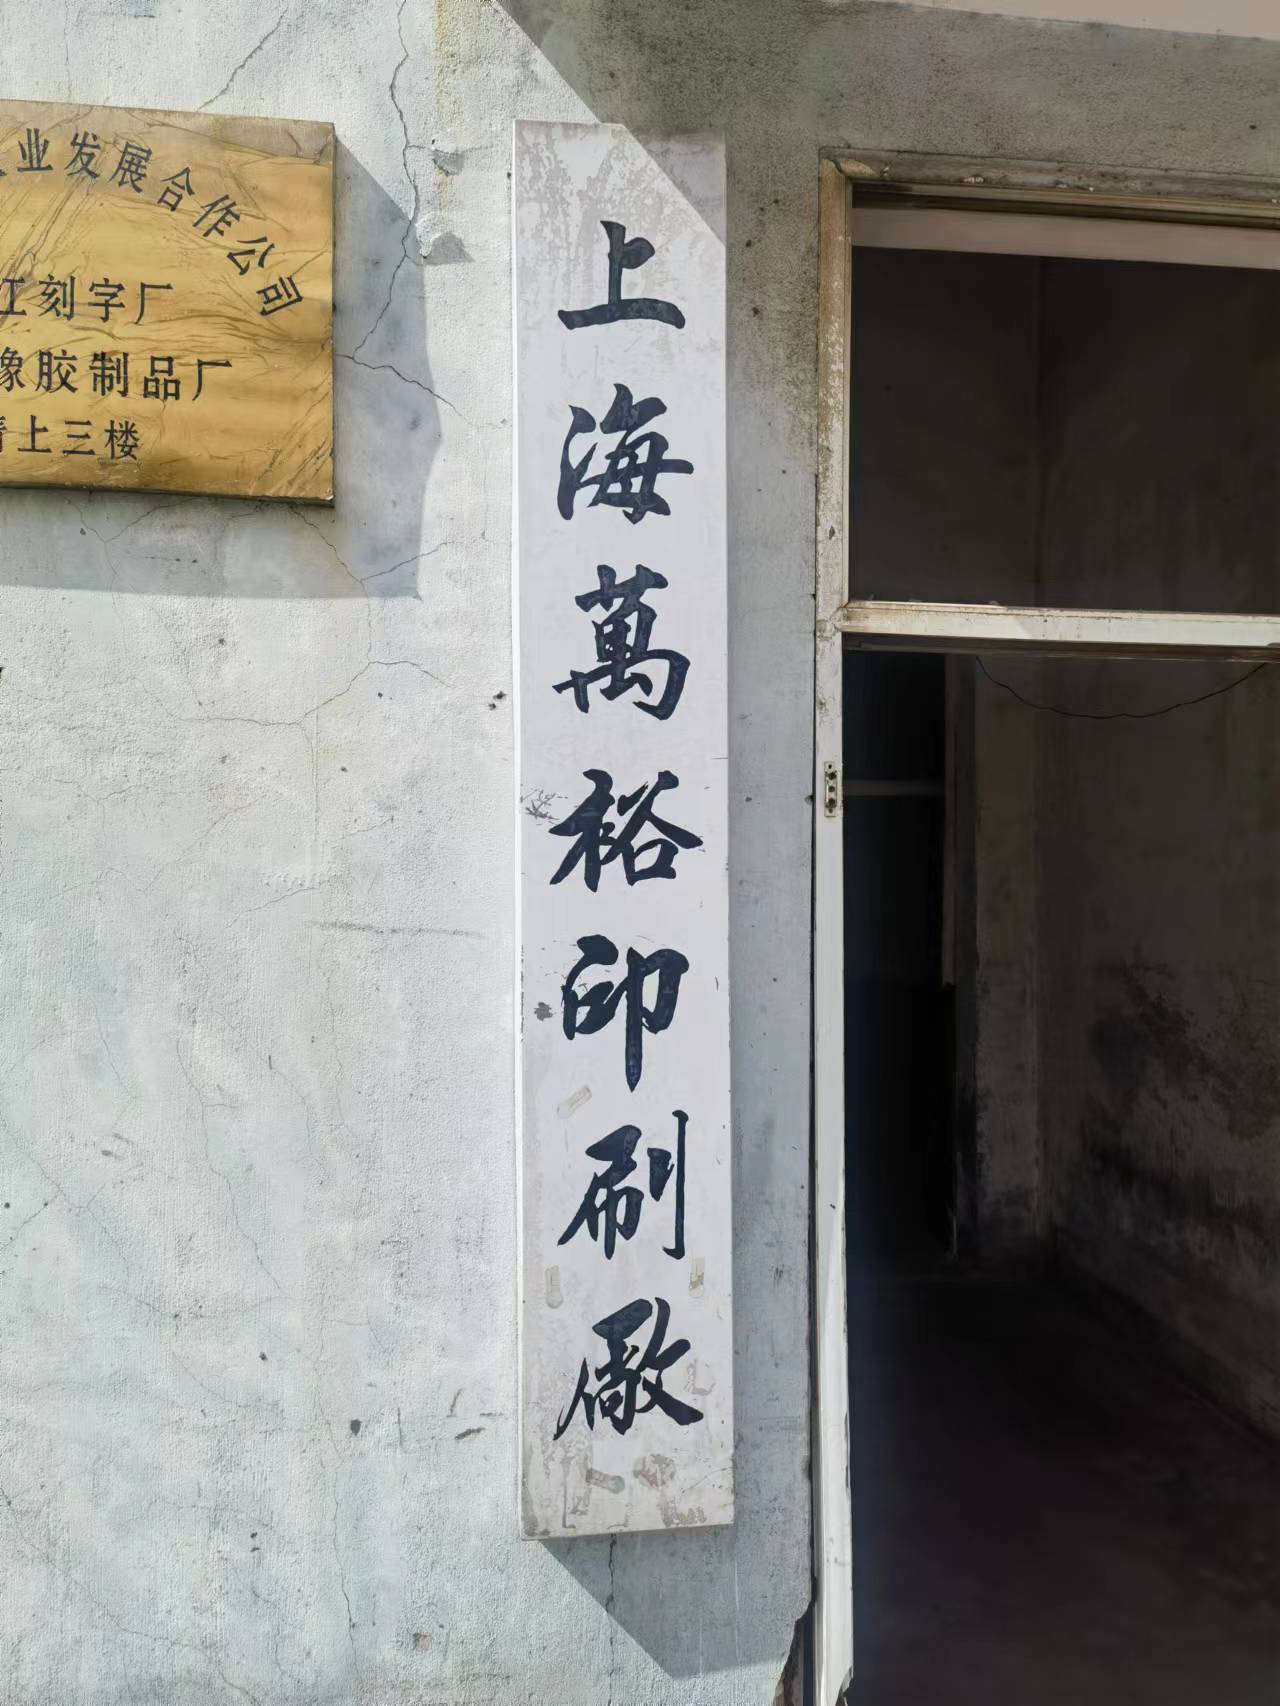 业发展合作公司
江刻字厂
橡胶制品厂
请上三楼
上海萬裕印刷廠